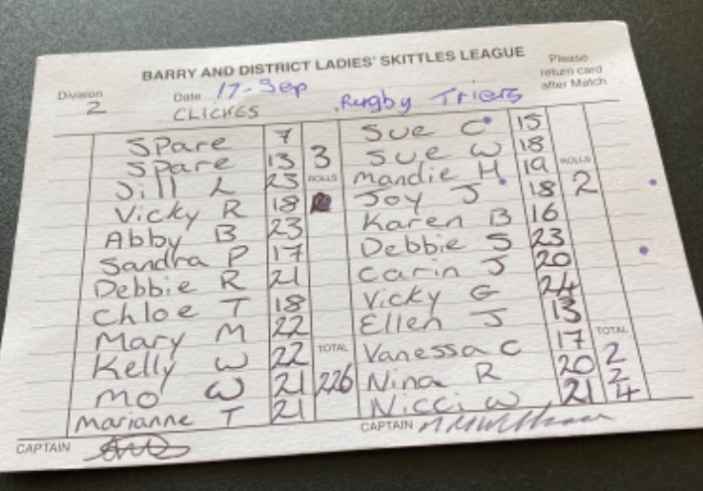 BARRY AND DISTRICT LADIES' SKITTLES LEAGUE
Please return card after Match
Division 2
Date 17-Sep
CLICKGS
Rugby Triers
Spare 7
Spare 13
Jill L 23
Vicky R 18
Abby B 23
Sandra P 17
Debbie R 21
Chloe T 18
Mary M 22
Kelly W 22
Mo W 21
Marianne T 21
3
ROLLS
TOTAL
226
Sue C 15
Sue W 18
Mandie H 19
Joy J 18
Karen B 16
Debbie S 23
Carin J 20
Vicky G 24
Ellen J 13
Vanessa C 17
Nina R 20
Nicci W 21
ROLLS
2
TOTAL
2
2
4
CAPTAIN
CAPTAIN